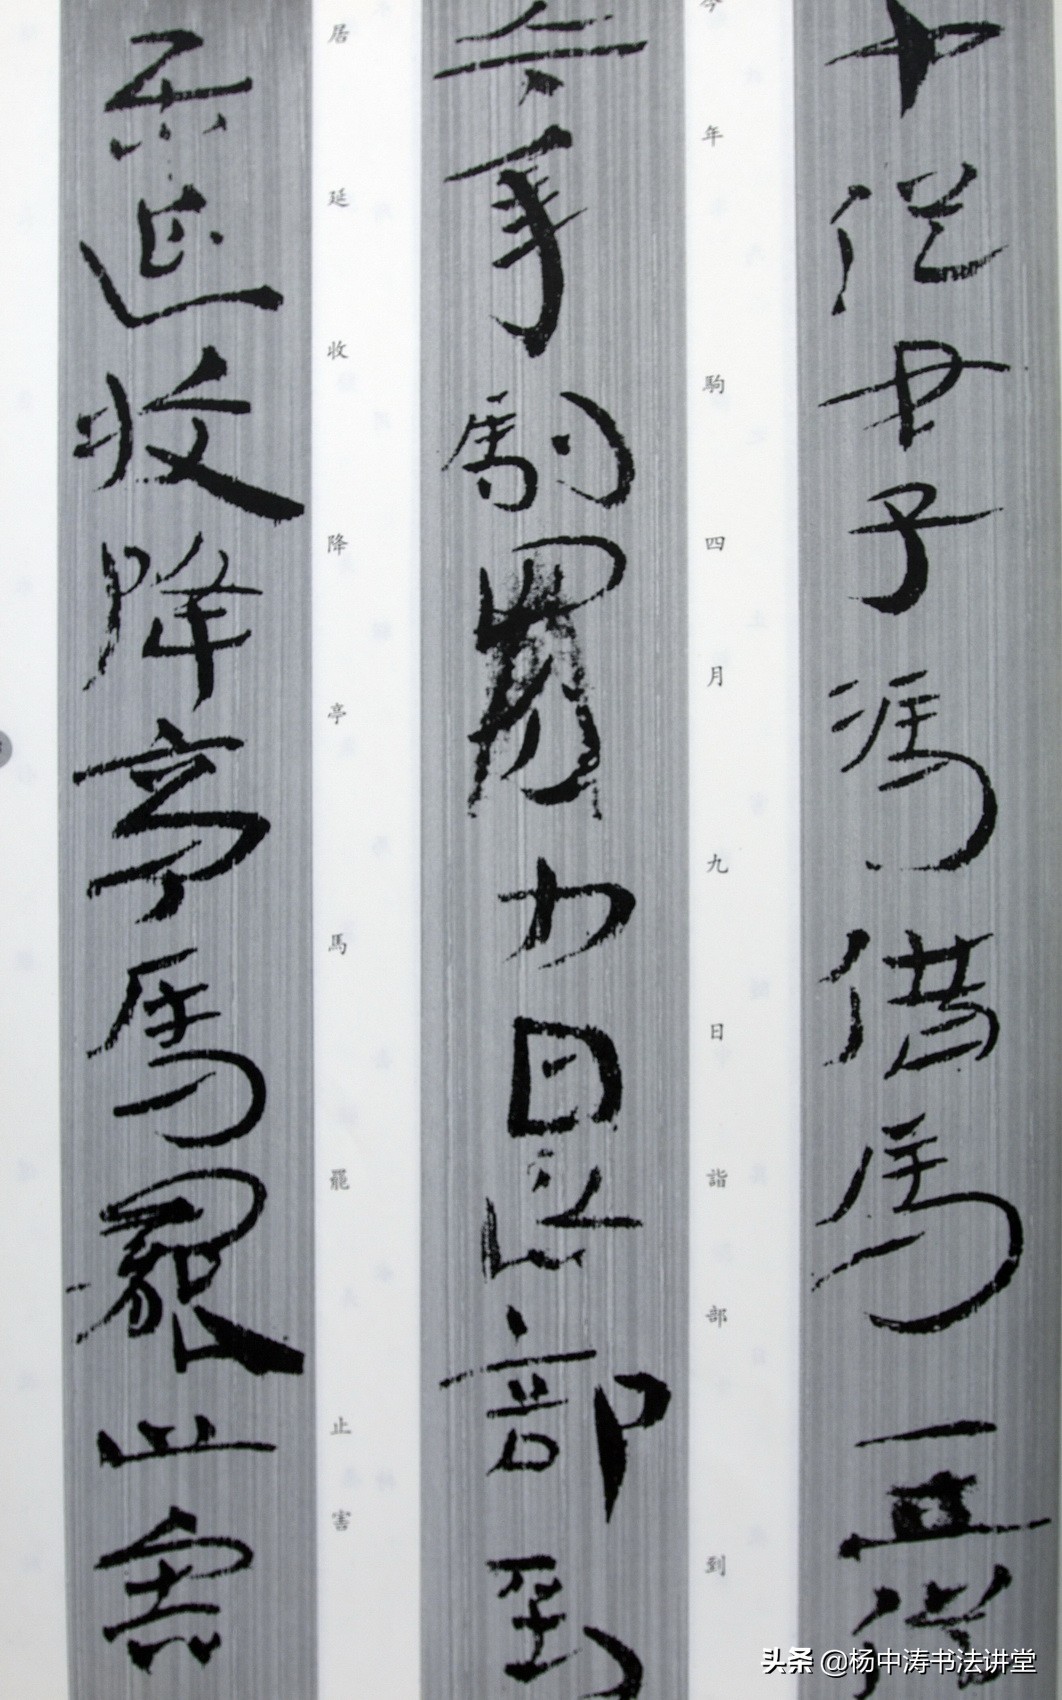 十從女子馮借馬一匹從
今年駒四月九日詣部到
今年駒四月九日詣部到
居延收降亭馬罷止害
居延收降亭馬罷止害
头条 @杨中涛书法讲堂